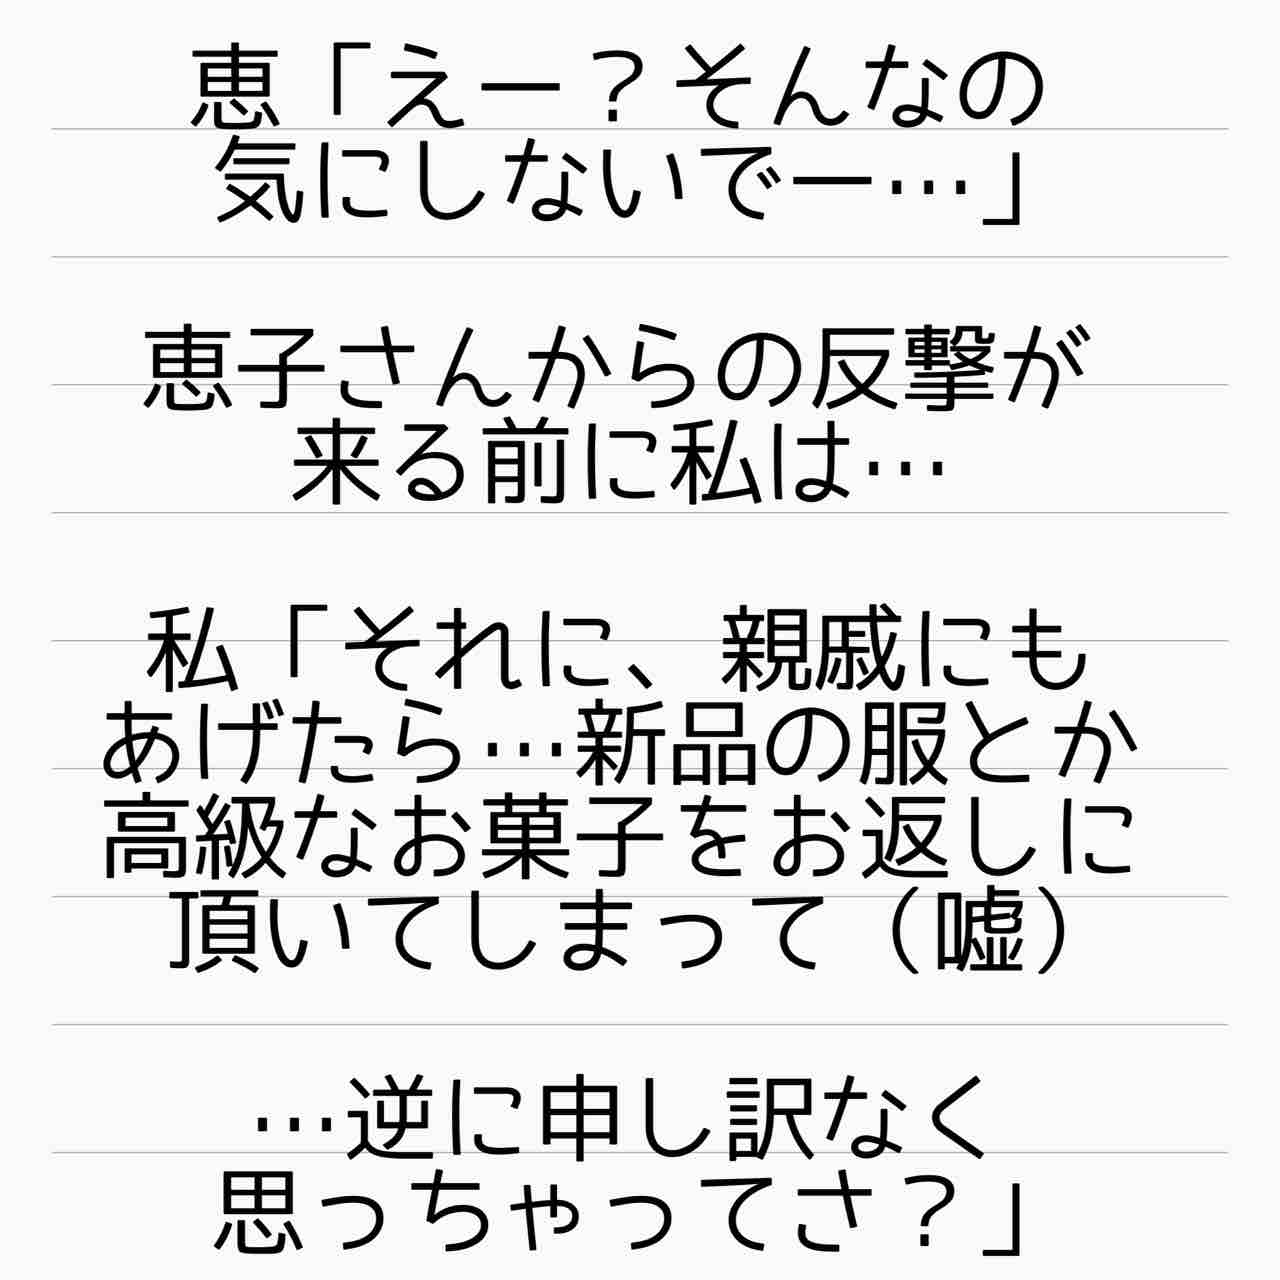 恵「えー？そんなの
気にしないでー…」
恵子さんからの反撃が
来る前に私は…
私「それに、親戚にも
あげたら…新品の服とか
高級なお菓子をお返しに
頂いてしまって（嘘）
…逆に申し訳なく
思っちゃってさ？」